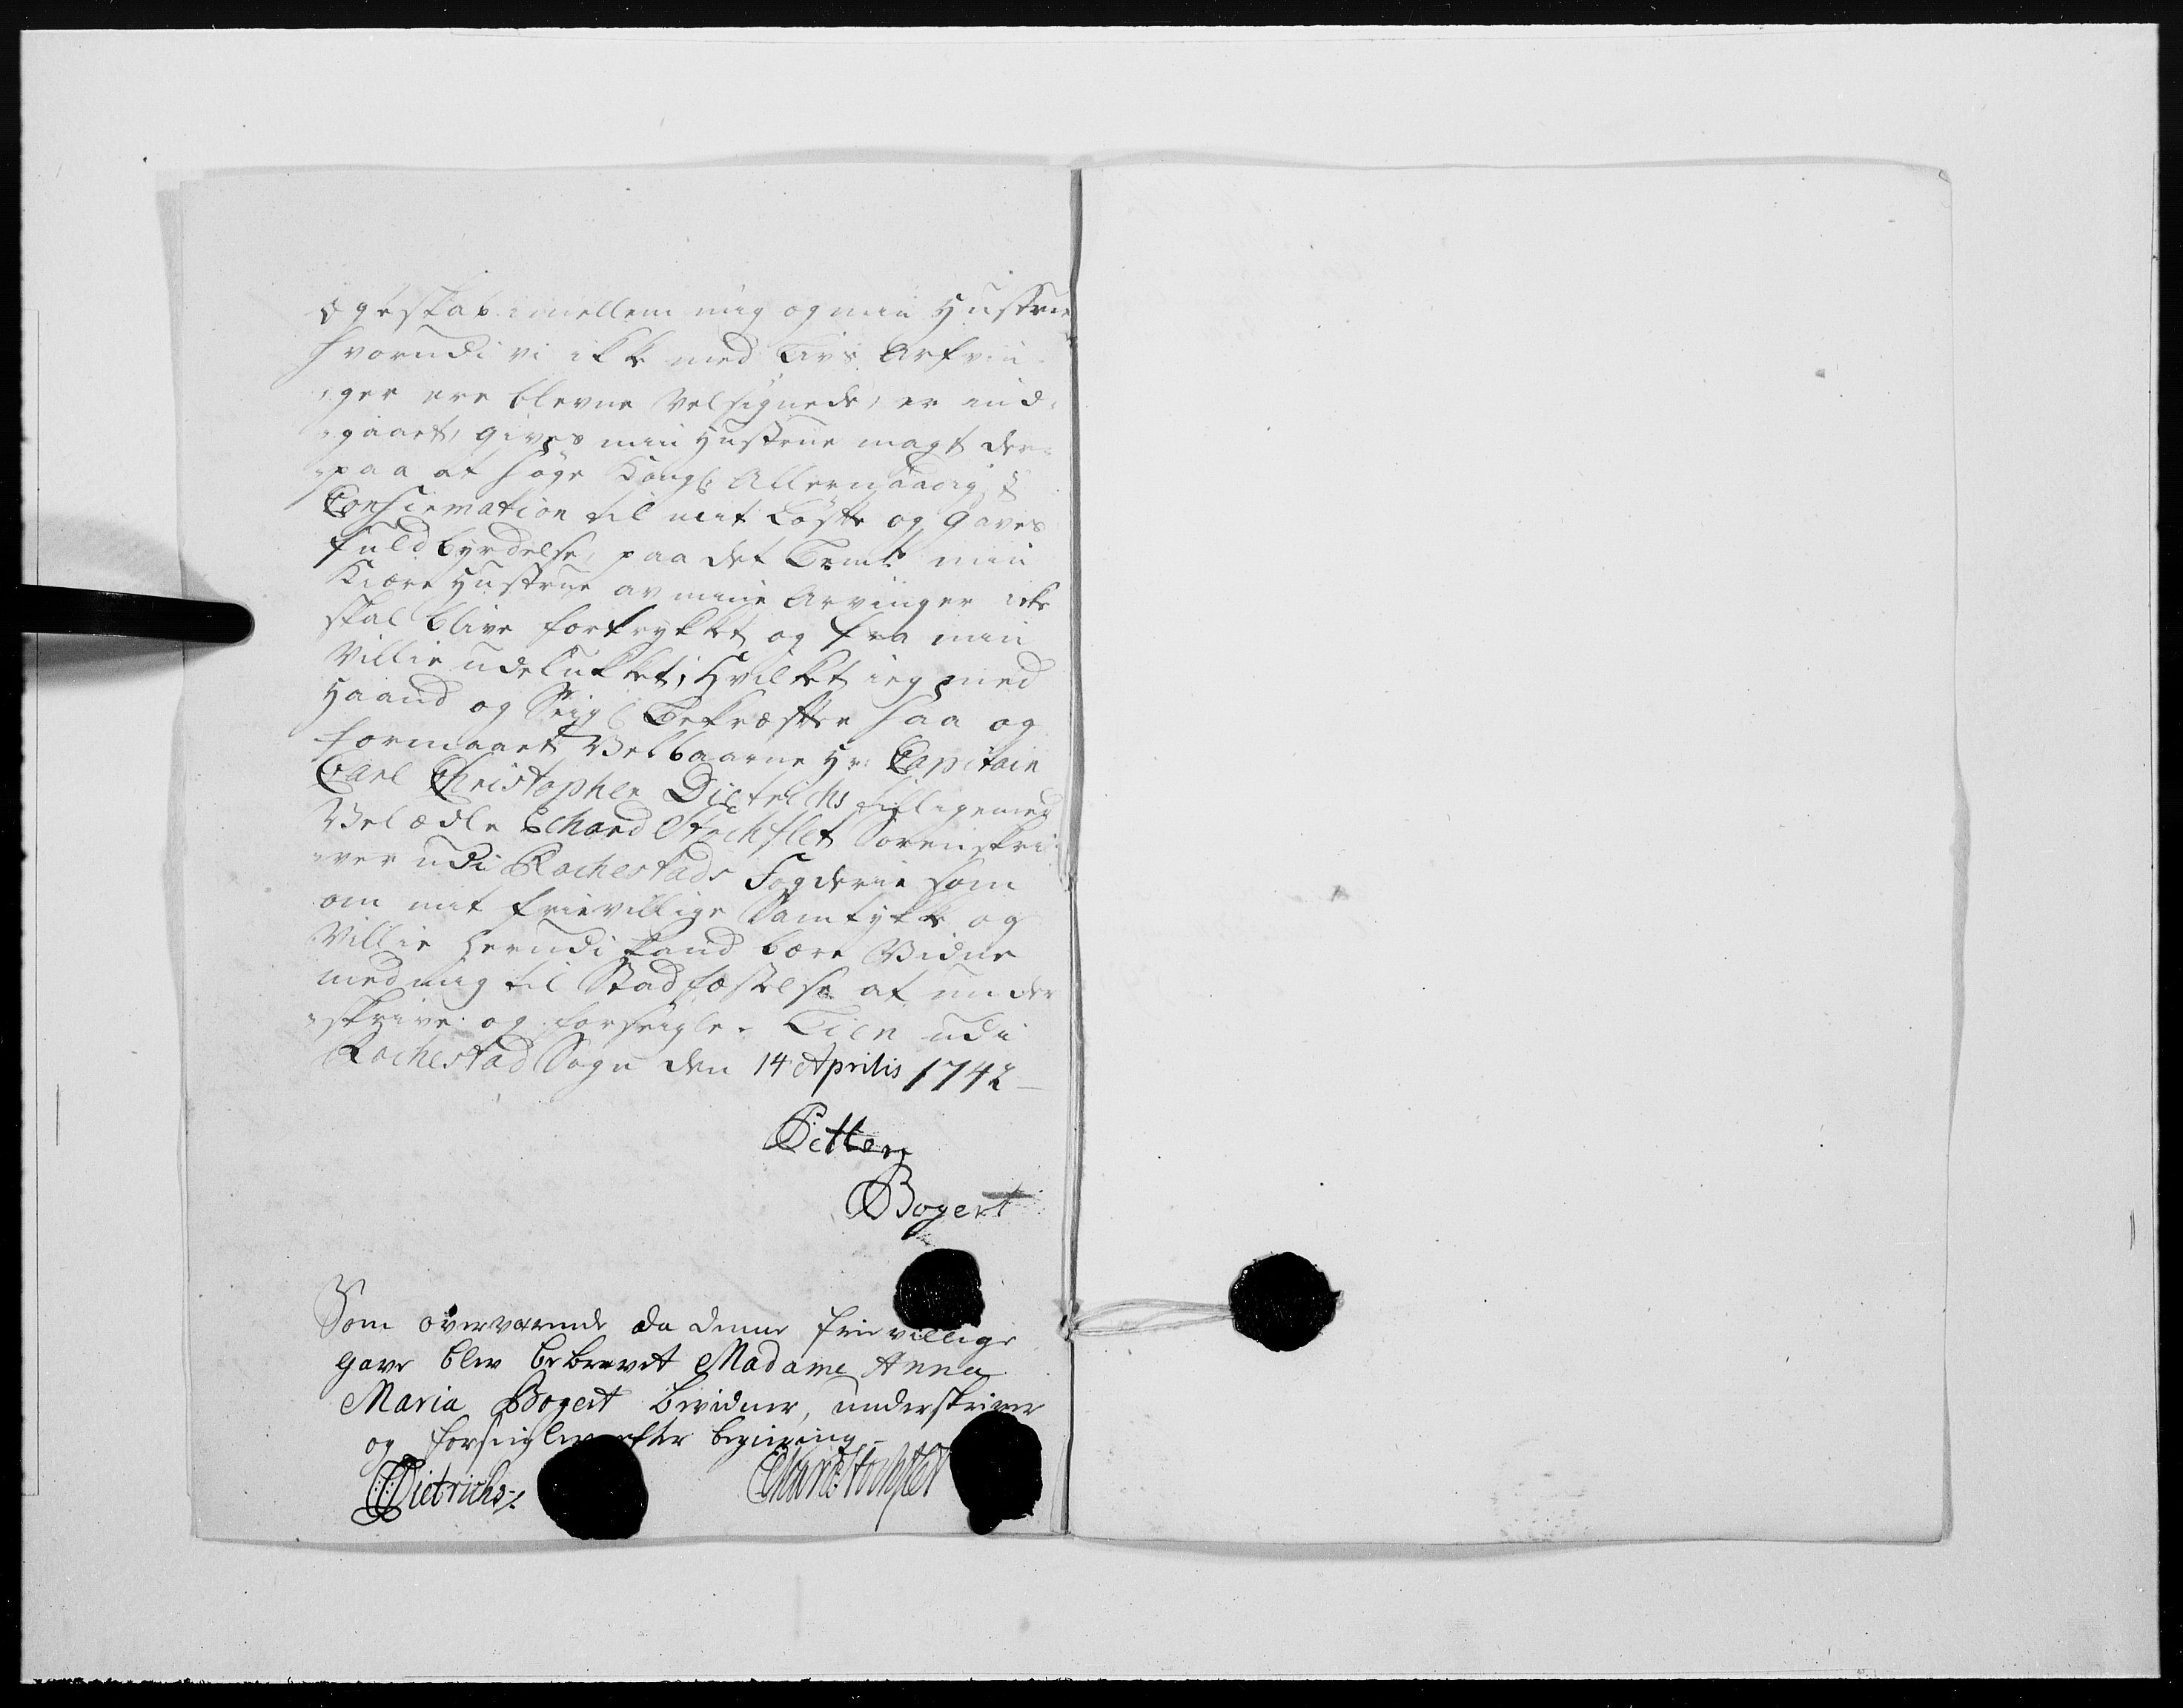 Egteskab imellem mig og min Hustrue
hvorudi vi ikke med Livs Arfvin-
ger ere blevne Velsignede, er ind-
gaaet, gives min Hustrue magt der-
paa at söge Kongl: Allernaadigste
Confirmation til mit Löfte og Gaves
fuldbyrdelse, paa det Bemte min
Kiære Hustrue av mine Arvinger icke
skal blive fortrykket og fra min
Villie udelukket; Hvilket ieg med
Haand og Seigl Bekræfter saa og
formaaet Velbaarne Hr: Capitain
Carl Christopher Dietrichs tilligemed
Velædle Echard Stochflet Sorenskri-
ver udi Rachestads Fogderie som
om mit frievillige Samtykke og
Villie herudi kand bære Vidne
med mig til Stadfæstelse at under
skrive og forseigle. Lien udi
Rachestad Sogn den 14 Aprilis 1742
Petter
Bogert
Som överværende da denne frievillige
gave blev bebrevet Madame Anna
Maria Bogert bevidner, underskriver
og forseigler efter begiering
CCDietrichs
Echard Stochflet